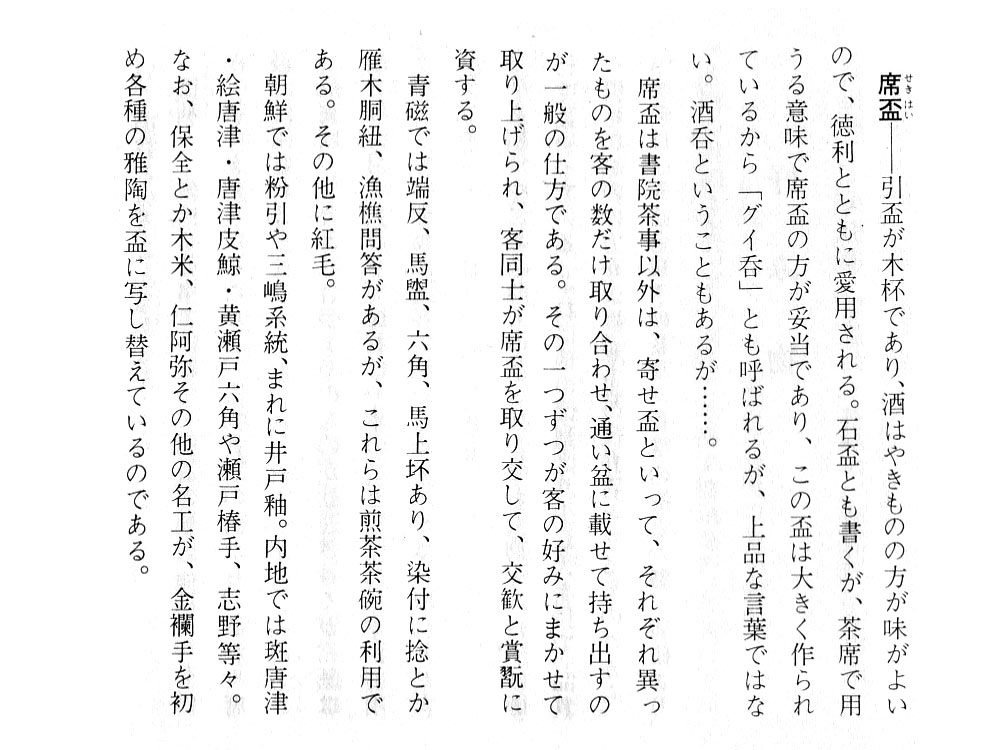 席盃――引盃が木杯であり、酒はやきものの方が味がよい
ので、徳利とともに愛用される。石盃とも書くが、茶席で用
うる意味で席盃の方が妥当であり、この盃は大きく作られ
ているから「グイ呑」とも呼ばれるが、上品な言葉ではな
い。酒呑ということもあるが……。
席盃は書院茶事以外は、寄せ盃といって、それぞれ異っ
たものを客の数だけ取り合わせ、通い盆に載せて持ち出すの
が一般の仕方である。その一つずつが客の好みにまかせて
取り上げられ、客同士が席盃を取り交して、交歓と賞翫に
資する。
青磁では端反、馬盥、六角、馬上坏あり、染付に捻とか
雁木胴紐、漁樵問答があるが、これらは煎茶茶碗の利用で
ある。その他に紅毛。
朝鮮では粉引や三嶋系統、まれに井戸釉。内地では斑唐津
・絵唐津・唐津皮鯨・黄瀬戸六角や瀬戸椿手、志野等々。
なお、保全とか木米、仁阿弥その他の名工が、金襴手を初
め各種の雅陶を盃に写し替えているのである。
せきはい